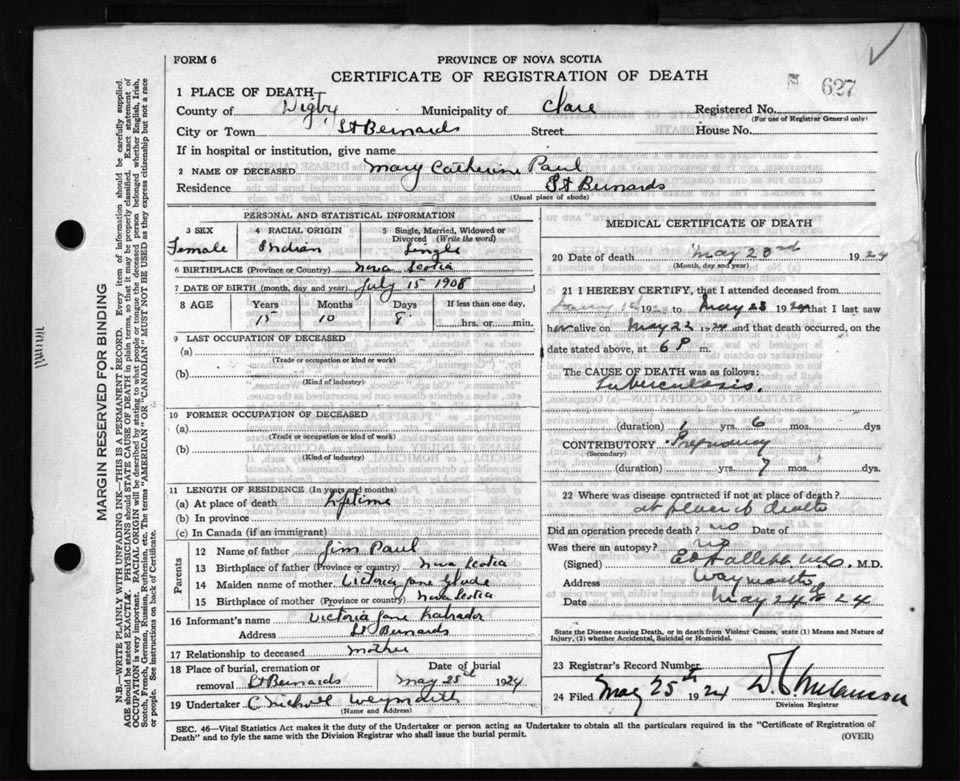 FORM 6
PROVINCE OF NOVA SCOTIA
CERTIFICATE OF REGISTRATION OF DEATH
627
1 PLACE OF DEATH
County of Digby Municipality of Clare Registered No.
(For use of Registrar General only)
City or Town St Bernards Street House No.
If in hospital or institution, give name
2 NAME OF DECEASED Mary Catherine Paul
Residence St Bernards
(Usual place of abode)
PERSONAL AND STATISTICAL INFORMATION
3 SEX 4 RACIAL ORIGIN 5 Single, Married, Widowed or Divorced (Write the word)
Female Indian Single
6 BIRTHPLACE (Province or Country) Nova Scotia
7 DATE OF BIRTH (month, day and year) July 15 1908
8 AGE Years Months Days If less than one day,
15 10 8 hrs. or min.
9 LAST OCCUPATION OF DECEASED
(a)
(Trade or occupation or kind or work)
(b)
(Kind of industry)
10 FORMER OCCUPATION OF DECEASED
(a)
(Trade or occupation or kind of work)
(b)
(Kind of industry)
11 LENGTH OF RESIDENCE (In years and months)
(a) At place of death Lifetime
(b) In province
(c) In Canada (if an immigrant)
Parents
12 Name of father Jim Paul
13 Birthplace of father (Province or country) Nova Scotia
14 Maiden name of mother Victoria Jane Glode
15 Birthplace of mother (Province or country) Nova Scotia
16 Informant's name Victoria Jane Labrador
Address St Bernards
17 Relationship to deceased mother
18 Place of burial, cremation or Date of burial
removal St Bernards May 25th 1924
19 Undertaker Weymouth
(Name and Address)
MEDICAL CERTIFICATE OF DEATH
20 Date of death May 23rd 1924
(Month, day and year)
21 I HEREBY CERTIFY, that I attended deceased from
192 to May 23 1924 that I last saw
her alive on May 22 1924 and that death occurred, on the
date stated above, at 6 P m.
The CAUSE OF DEATH was as follows:
Tuberculosis.
(duration) 1 yrs. 6 mos. dys
CONTRIBUTORY Pregnancy
(Secondary)
(duration) yrs. 7 mos. dys.
22 Where was disease contracted if not at place of death?
at place of death
Did an operation precede death? no Date of
Was there an autopsy? no
(Signed) M.D.
Address Weymouth
Date May 24th 24
State the Disease causing Death, or in death from Violent Causes, state (1) Means and Nature of Injury, (2) whether Accidental, Suicidal or Homicidal.
23 Registrar's Record Number
24 Filed May 25th 1924 Melanson
Division Registrar
SEC. 46—Vital Statistics Act makes it the duty of the Undertaker or person acting as Undertaker to obtain all the particulars required in the "Certificate of Registration of
Death" and to fyle the same with the Division Registrar who shall issue the burial permit.
(OVER)
MARGIN RESERVED FOR BINDING
N.B.—WRITE PLAINLY WITH UNFADING INK—THIS IS A PERMANENT RECORD. Every item of information should be carefully supplied.
AGE should be stated EXACTLY. PHYSICIANS should STATE CAUSE OF DEATH in plain terms, so that it may be properly classified. Exact statement of
OCCUPATION is very important. RACIAL ORIGIN will be described by stating to what people or tongue the deceased person belonged whether English, Irish,
Scotch, French, German, Russian, Ruthenian, etc. The terms "AMERICAN" OR "CANADIAN" MUST NOT BE USED as they express citizenship but not a race
or people. See instructions on back of Certificate.